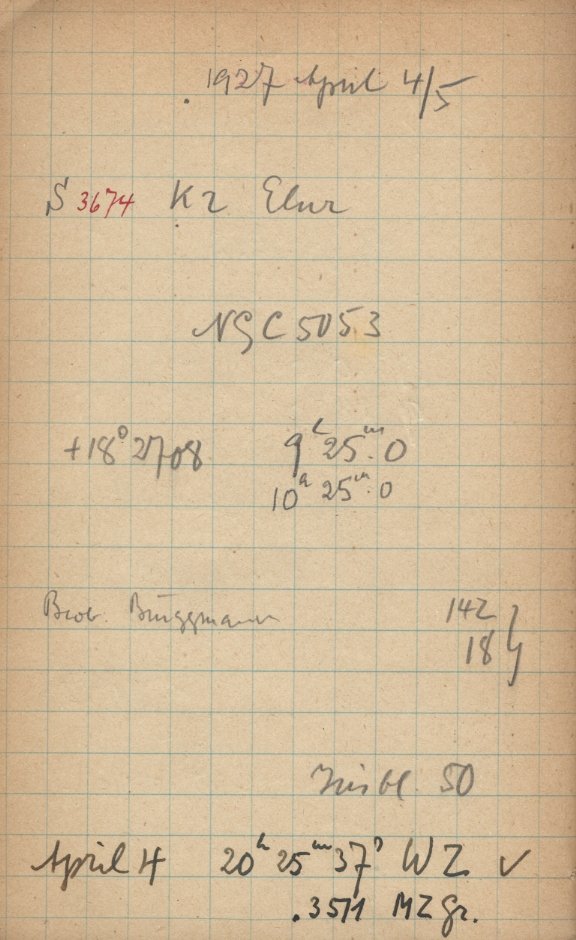 1927 April 4/5
S 3674 K2
NGC 5053
+18° 2708 9ʰ 25ᵐ.0
10ʰ 25ᵐ.0
Beob. Brüggmann 142
18
Irisbl. 50
April 4 20ʰ 25ᵐ 37ˢ WZ ✓
.3511 MZ Gr.